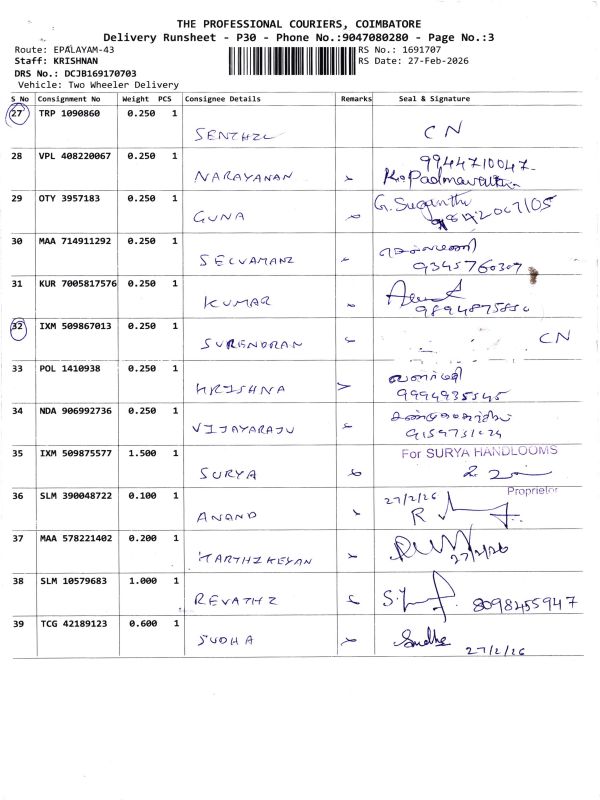 THE PROFESSIONAL COURIERS, COIMBATORE
Delivery Runsheet - P30 - Phone No.:9047080280 - Page No.:3
Route: EPALAYAM-43
RS No.: 1691707
Staff: KRISHNAN
RS Date: 27-Feb-2026
DRS No.: DCJB169170703
Vehicle: Two Wheeler Delivery
S No Consignment No Weight PCS Consignee Details Remarks Seal & Signature
27 TRP 1090860 0.250 1
SENTHIL CN
28 VPL 408220067 0.250 1
9944710047
NARAYANAN K. Padmavathi
29 OTY 3957183 0.250 1
G. Suganthi
GUNA
30 MAA 714911292 0.250 1
செல்வமணி
SELVAMANI 9345760307
31 KUR 7005817576 0.250 1
KUMAR
32 IXM 509867013 0.250 1
SURENDRAN CN
33 POL 1410938 0.250 1
வளர்மதி
KRISHNA 9994935545
34 NDA 906992736 0.250 1
VIJAYARAJU
35 IXM 509875577 1.500 1
For SURYA HANDLOOMS
SURYA
Proprietor
36 SLM 390048722 0.100 1
27/2/26
ANAND R
37 MAA 578221402 0.200 1
KARTHIKEYAN 27/2/26
38 SLM 10579683 1.000 1
REVATHI S. 8098455947
39 TCG 42189123 0.600 1
SUDHA Sudha 27/2/26